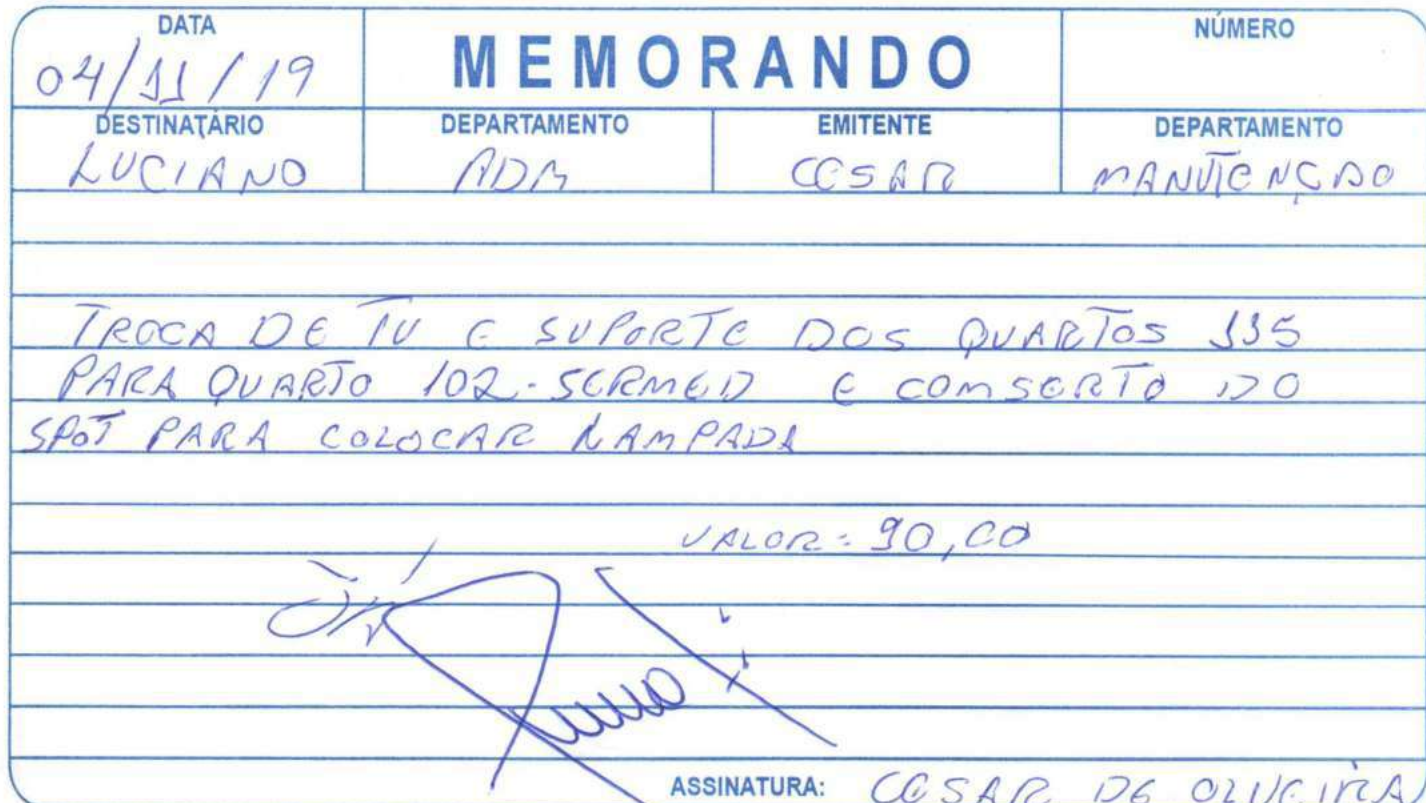 DATA
04/11/19
MEMORANDO
NÚMERO
DESTINATÁRIO
LUCIANO
DEPARTAMENTO
ADM
EMITENTE
CESAR
DEPARTAMENTO
MANUTENÇÃO
TROCA DE TV E SUPORTE DOS QUARTOS 115
PARA QUARTO 102-SERMED E COMSERTO DO
SPOT PARA COLOCAR LAMPADA
VALOR = 90,00
ASSINATURA: CESAR DE OLIVEIRA